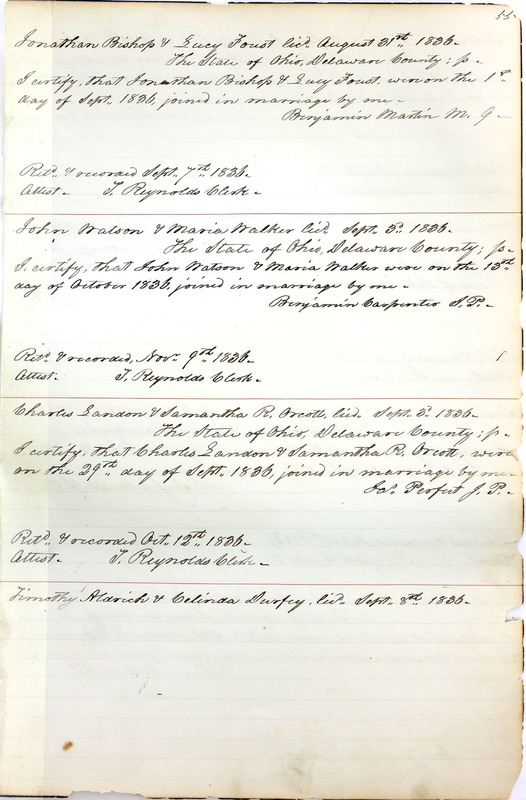 55.
Jonathan Bishop & Lucy Foust licd. August 31st. 1836.
The State of Ohio, Delaware County; ss.
I certify, that Jonathan Bishop & Lucy Foust, were on the 1st.
day of Sept. 1836, joined in marriage by me.
Benjamin Martin M. G.
Retd. & recorded Sept. 7th. 1836.
Attest. T. Reynolds Clerk.
John Watson & Maria Walker licd. Sept. 5. 1836.
The State of Ohio, Delaware County; ss.
I certify, that John Watson, & Maria Walker were on the 13th
day of October 1836, joined in marriage by me.
Benjamin Carpenter J. P.
Retd. & recorded, Nov. 9th. 1836.
Attest. T. Reynolds Clerk.
Charles Landon & Samantha R. Orcott, licd. Sept. 5. 1836.
The State of Ohio, Delaware County; ss.
I certify, that Charles Landon & Samantha R. Orcott, were
on the 29th. day of Sept. 1836, joined in marriage by me.
Perfect J. P.
Retd. & recorded Oct. 12th. 1836.
Attest. T. Reynolds Clerk.
Timothy Aldrich & Celinda Durfey, licd. Sept. 8th. 1836.